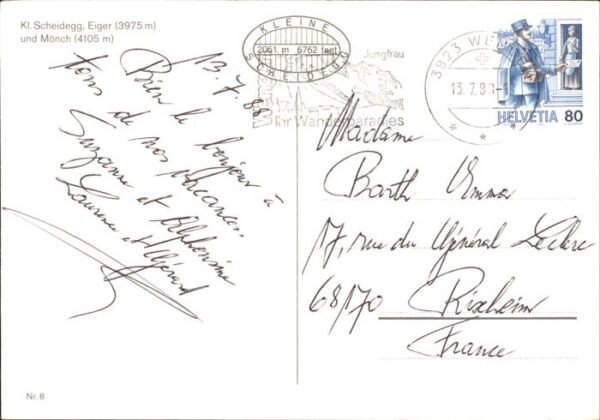 Kl. Scheidegg, Eiger (3975 m)
und Mönch (4105 m)
13.7.88
Bien le bonjour à
tous de nos vacances.
Suzanne et Alphonsine
Laurence et Gérard
KLEINE
2061 m 6762 feet
SCHEIDEGG
Jungfrau
Ihr Wanderparadies
3823 WE
13.7.88-
HELVETIA 80
Madame
Barth Emma
17, rue du Général Leclerc
68170 Rixheim
France
Nr. 8